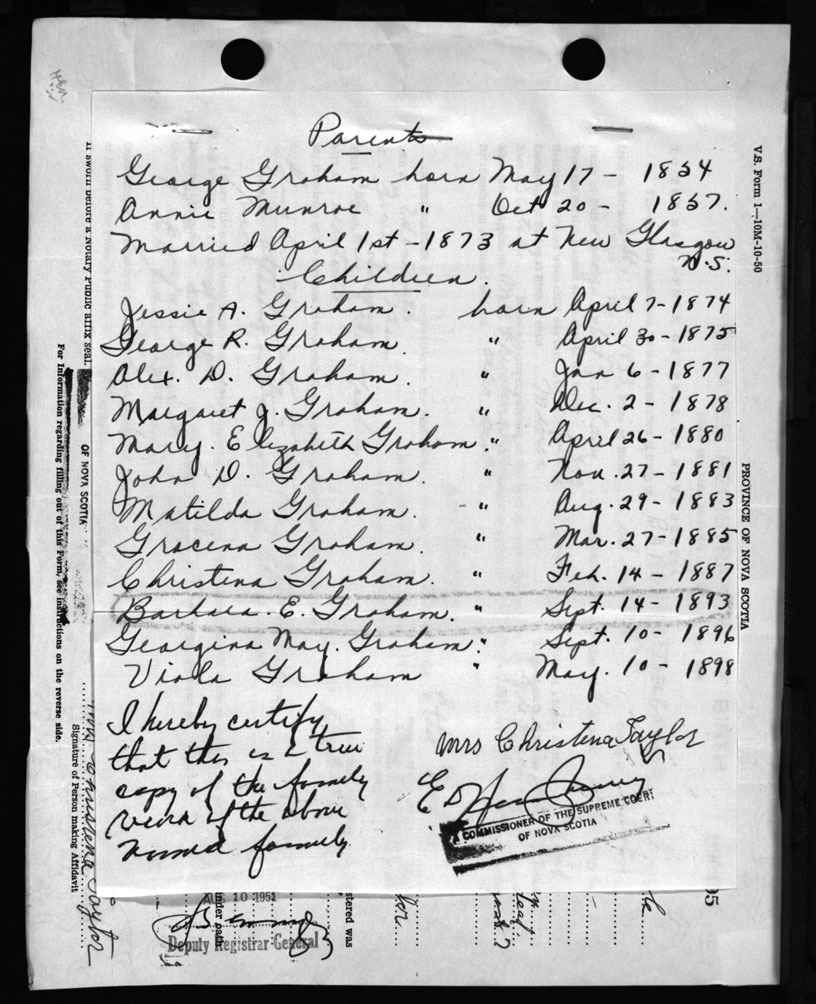 Parents
George Graham born May 17 - 1854
Annie Munroe " Oct 20 - 1857.
Married April 1st - 1873 at New Glasgow
N.S.
Children.
Jessie A. Graham. born April 7 - 1874
George R. Graham. " April 30 - 1875
Alex. D. Graham. " Jan 6 - 1877
Margaret J. Graham. " Dec. 2 - 1878
Mary. Elizabeth Graham. " April 26 - 1880
John D. Graham. " Nov. 27 - 1881
Matilda Graham. " Aug. 29 - 1883
Gracena Graham. " Mar. 27 - 1885
Christena Graham. " Feb. 14 - 1887
Barbara. E. Graham. " Sept. 14 - 1893
Georgina May. Graham. " Sept. 10 - 1896
Viola Graham " May. 10 - 1898
I hereby certify
that this is a true
copy of the family
record of the above
named family
Mrs Christena Taylor
COMMISSIONER OF THE SUPREME COURT
OF NOVA SCOTIA
V.S. Form 1—10M-10-50
PROVINCE OF NOVA SCOTIA
If sworn before a Notary Public affix seal.
OF NOVA SCOTIA
For Information regarding filling out of this Form, see instructions on the reverse side.
Mrs Christena Taylor
Signature of Person making Affidavit
10 1951
Deputy Registrar General
under oath
stered was
95